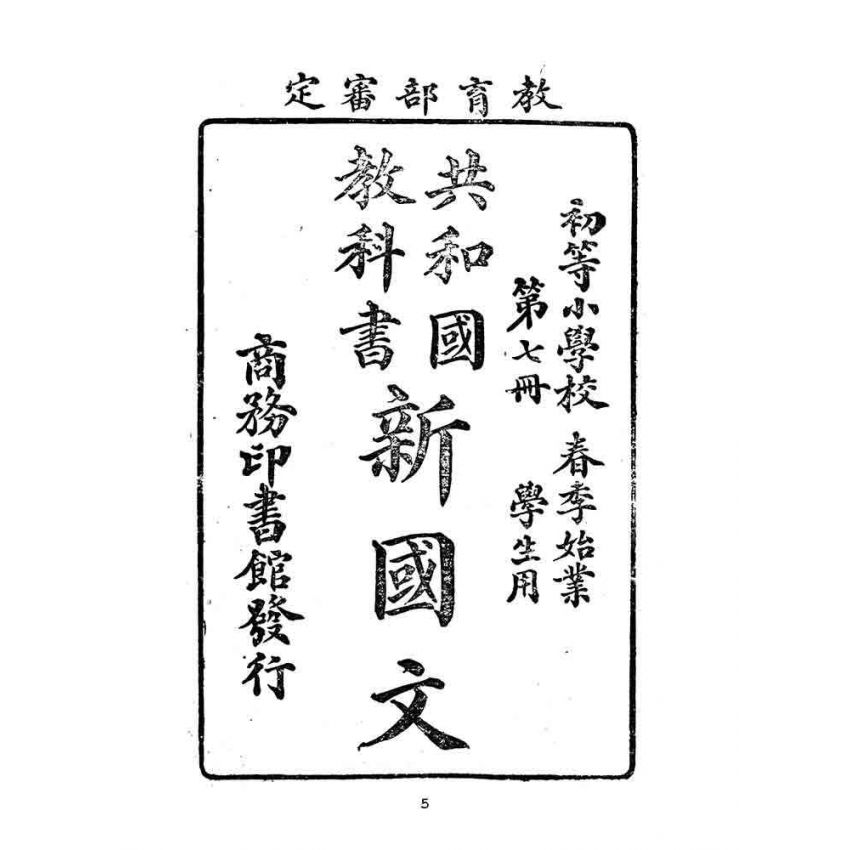 教育部審定
初等小學校 春季始業
第七冊 學生用
共和國
教科書
新國文
商務印書館發行
5